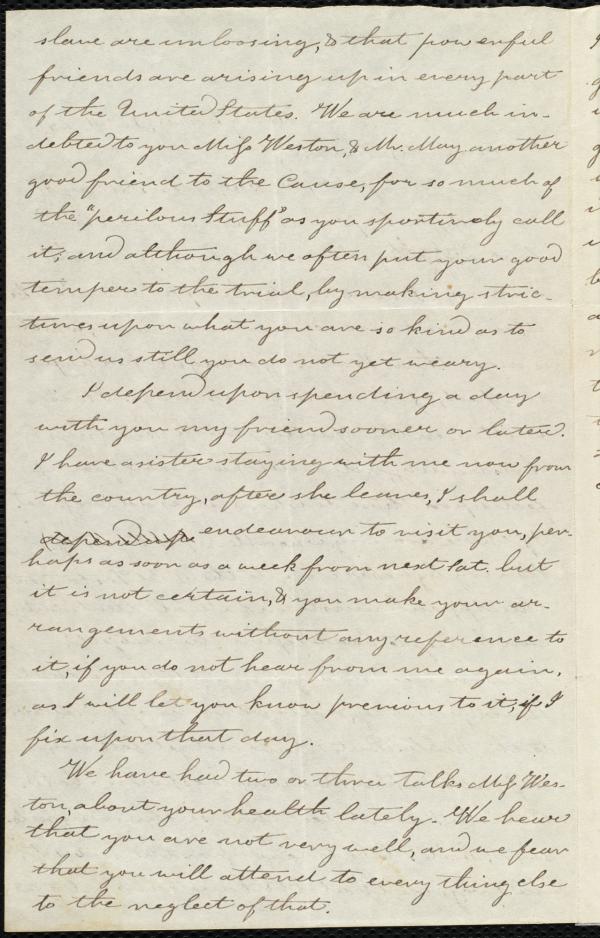 slave are unloosing, & that powerful
friends are arising up in every part
of the United States. We are much in-
debted to you Miss Weston, & Mr. May another
good friend to the Cause, for so much of
the "perilous stuff" as you sportively call
it; and although we often put your good
temper to the trial, by making stric-
tures upon what you are so kind as to
send us still you do not yet weary.
I depend upon spending a day
with you my friend sooner or later.
I have a sister staying with me now from
the country, after she leaves, I shall
depend up endeavour to visit you, per-
haps as soon as a week from next Sat. but
it is not certain, & you make your ar-
rangements without any reference to
it, if you do not hear from me again,
as I will let you know previous to it, if I
fix upon that day.
We have had two or three talks Miss Wes-
ton, about your health lately. We hear
that you are not very well, and we fear
that you will attend to every thing else
to the neglect of that.